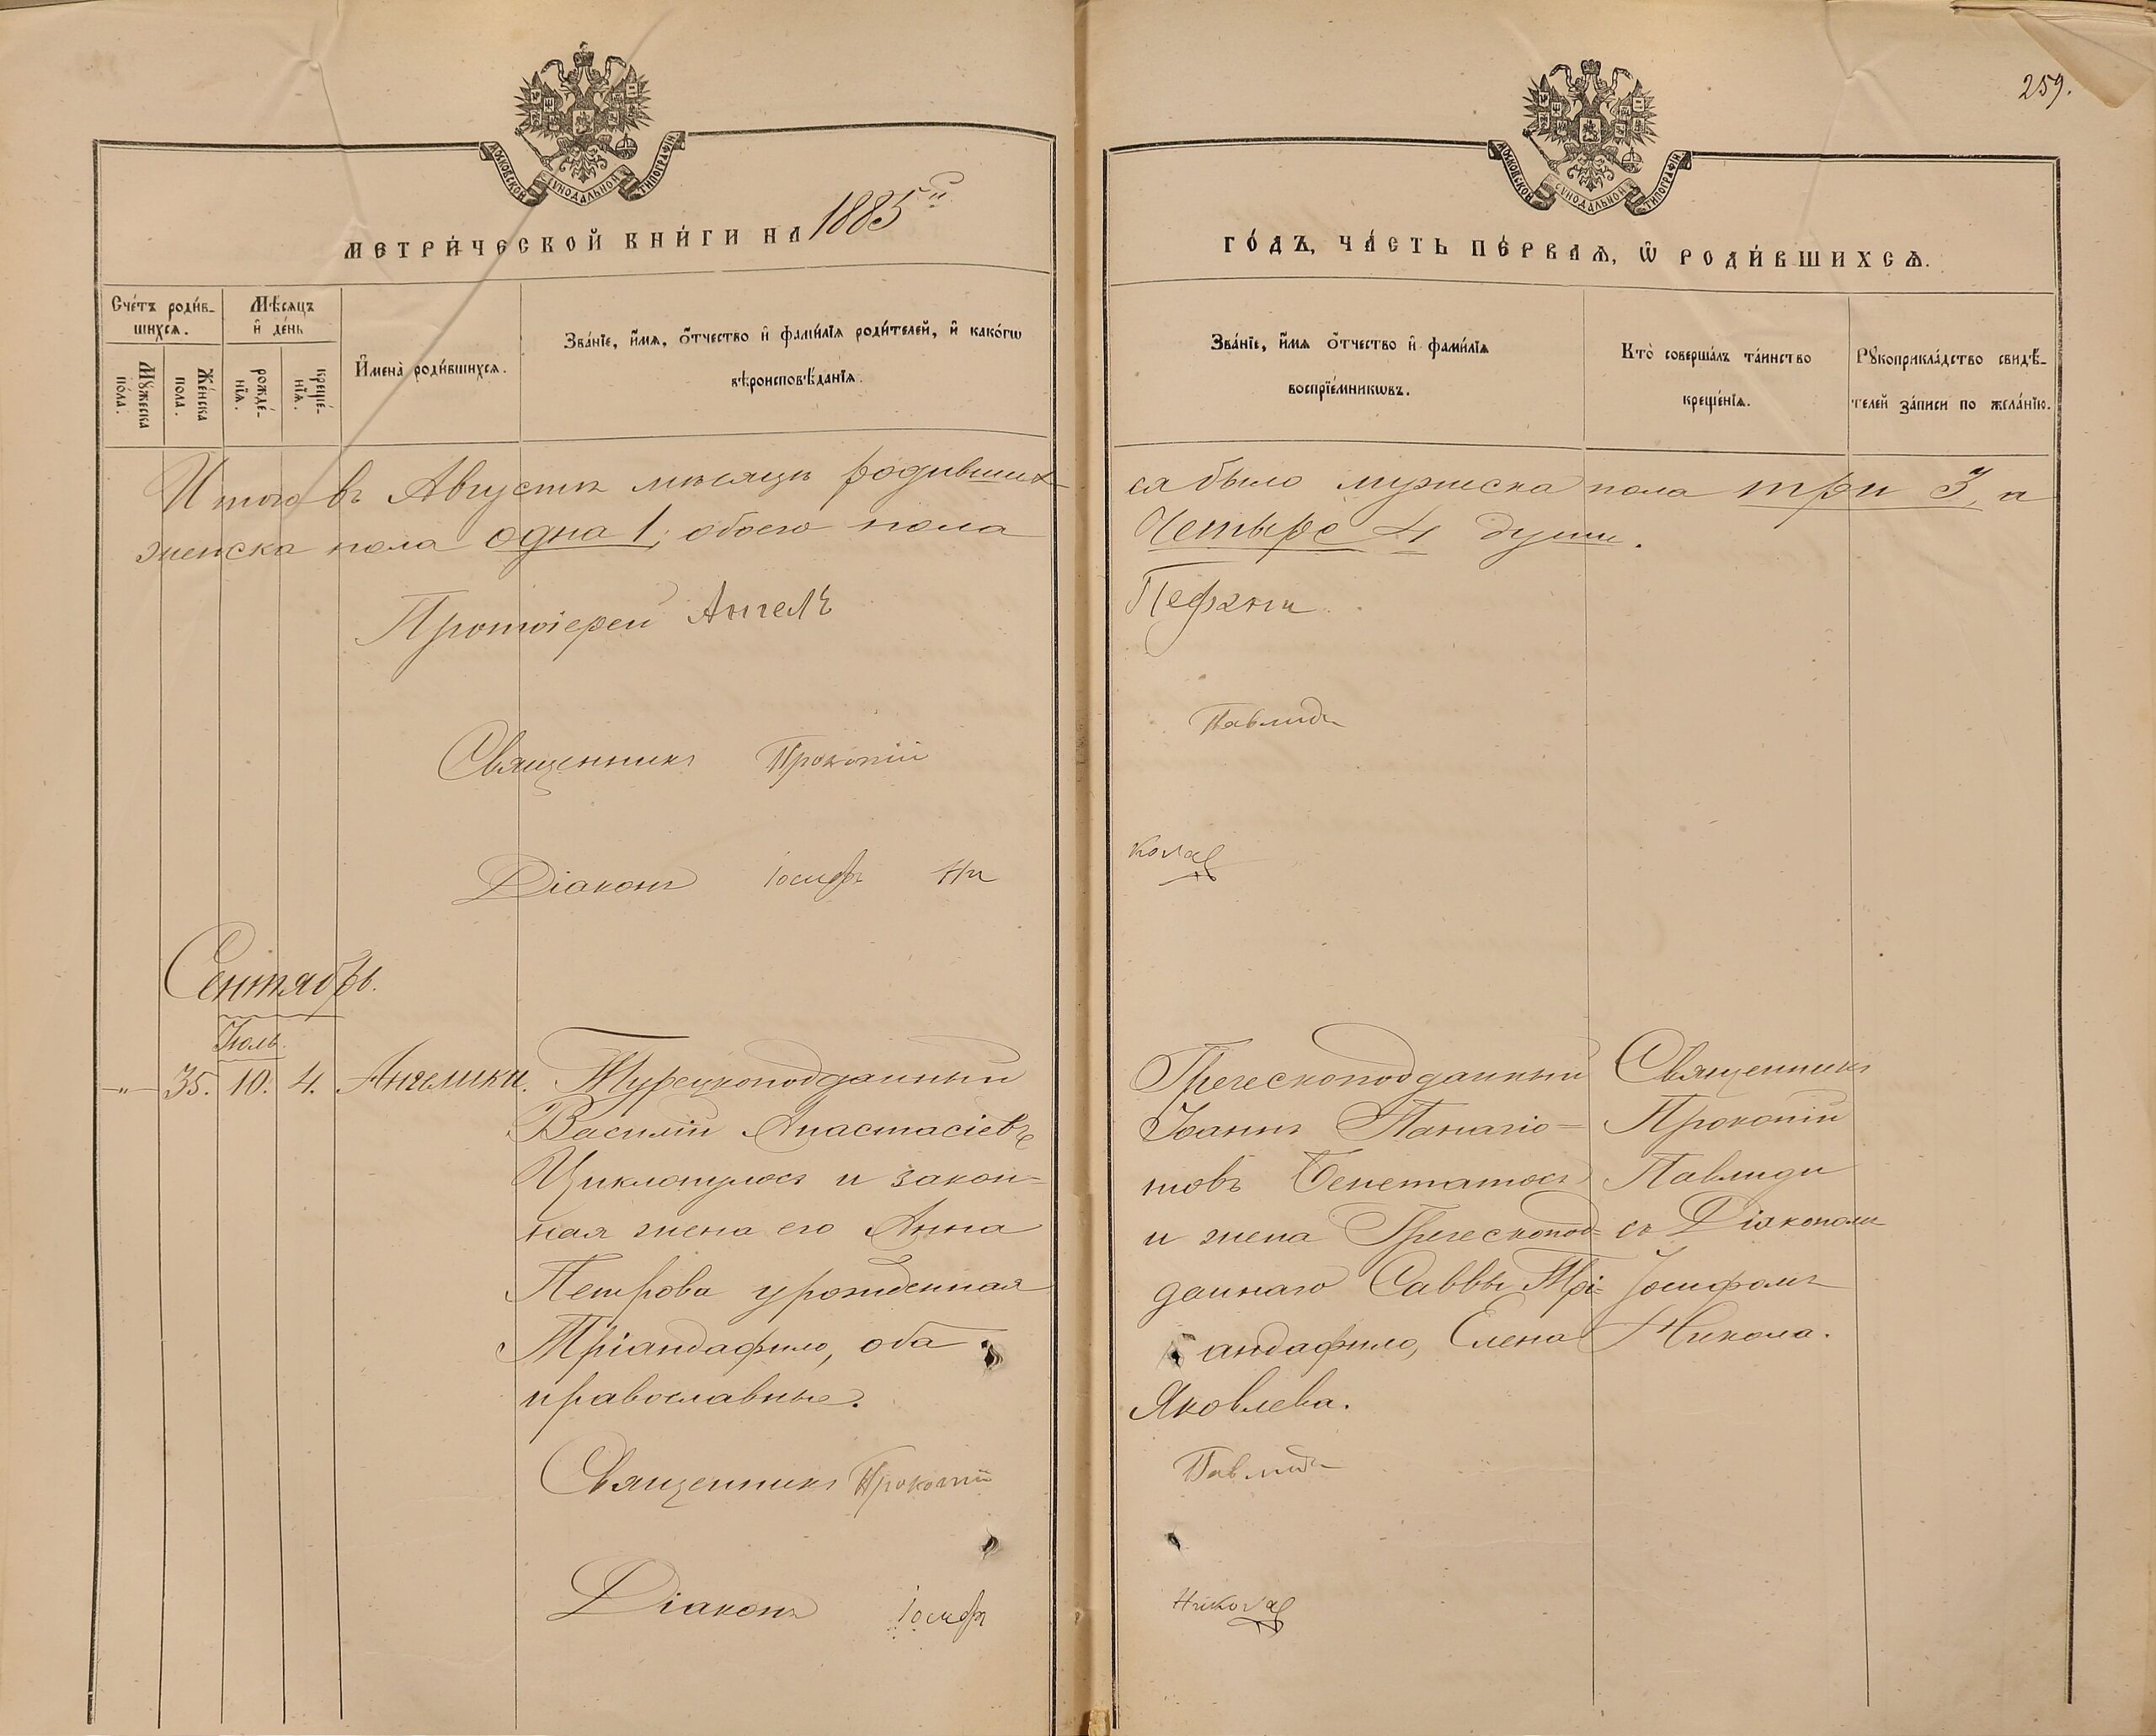 259.
МОСКОВСКОЙ СѴНОДАЛЬНОЙ ТИПОГРАФІИ
МОСКОВСКОЙ СѴНОДАЛЬНОЙ ТИПОГРАФІИ
МЕТРИ́ЧЕСКОЙ КНИ́ГИ НА 1885й
ГО́ДЪ, ЧА́СТЬ ПЕ́РВАѦ, Ѡ҆ РОДИ́ВШИХСѦ.
Сче́тъ роди́в-
шихсѧ.
Мѣ́сѧцъ
и҆ де́нь
Мꙋ́жеска
по́ла.
Же́нска
пола.
рожде́-
нїѧ.
креще́-
нїѧ.
И҆мена̀ роди́вшихсѧ.
Зва́нїе, и҆́мѧ, ѻ҆́тчество и҆ фами́лїѧ роди́телей, и҆ како́гѡ
вѣроисповѣ́данїѧ.
Зва́нїе, и҆́мѧ ѻ҆́тчество и҆ фами́лїѧ
воспрїе́мникѡвъ.
Кто̀ соверша́лъ та́инство
креще́нїѧ.
Рꙋкоприкла́дство свидѣ́-
телей за́писи по жела́нїю.
Итого въ Августѣ мѣсяцѣ родивших-
ся было мужеска пола три 3, а
женска пола одна 1; обоего пола
Четыре 4 души.
Протоіерей Ангелъ
Священникъ Прокопій
Павлиди
Діаконъ Іосифъ Ни
кола
Сентябрь.
Іюль.
-„- 35. 10. 4. Ангелики.
Турецкоподданный
Василій Анастасіевъ
Циклопулосъ и закон-
ная жена его Анна
Петрова урожденная
Тріандафило, оба
православные.
Греческоподданный
Іоаннъ Панагіо-
товъ Бенетатосъ
и жена Греческопод-
даннаго Саввы Трі-
андафило, Елена
Яковлева.
Священникъ
Прокопій
Павлиди
съ Діакономъ
Іосифомъ
Никола.
Священникъ Прокопій
Павлиди
Діаконъ Іосифъ
Никола